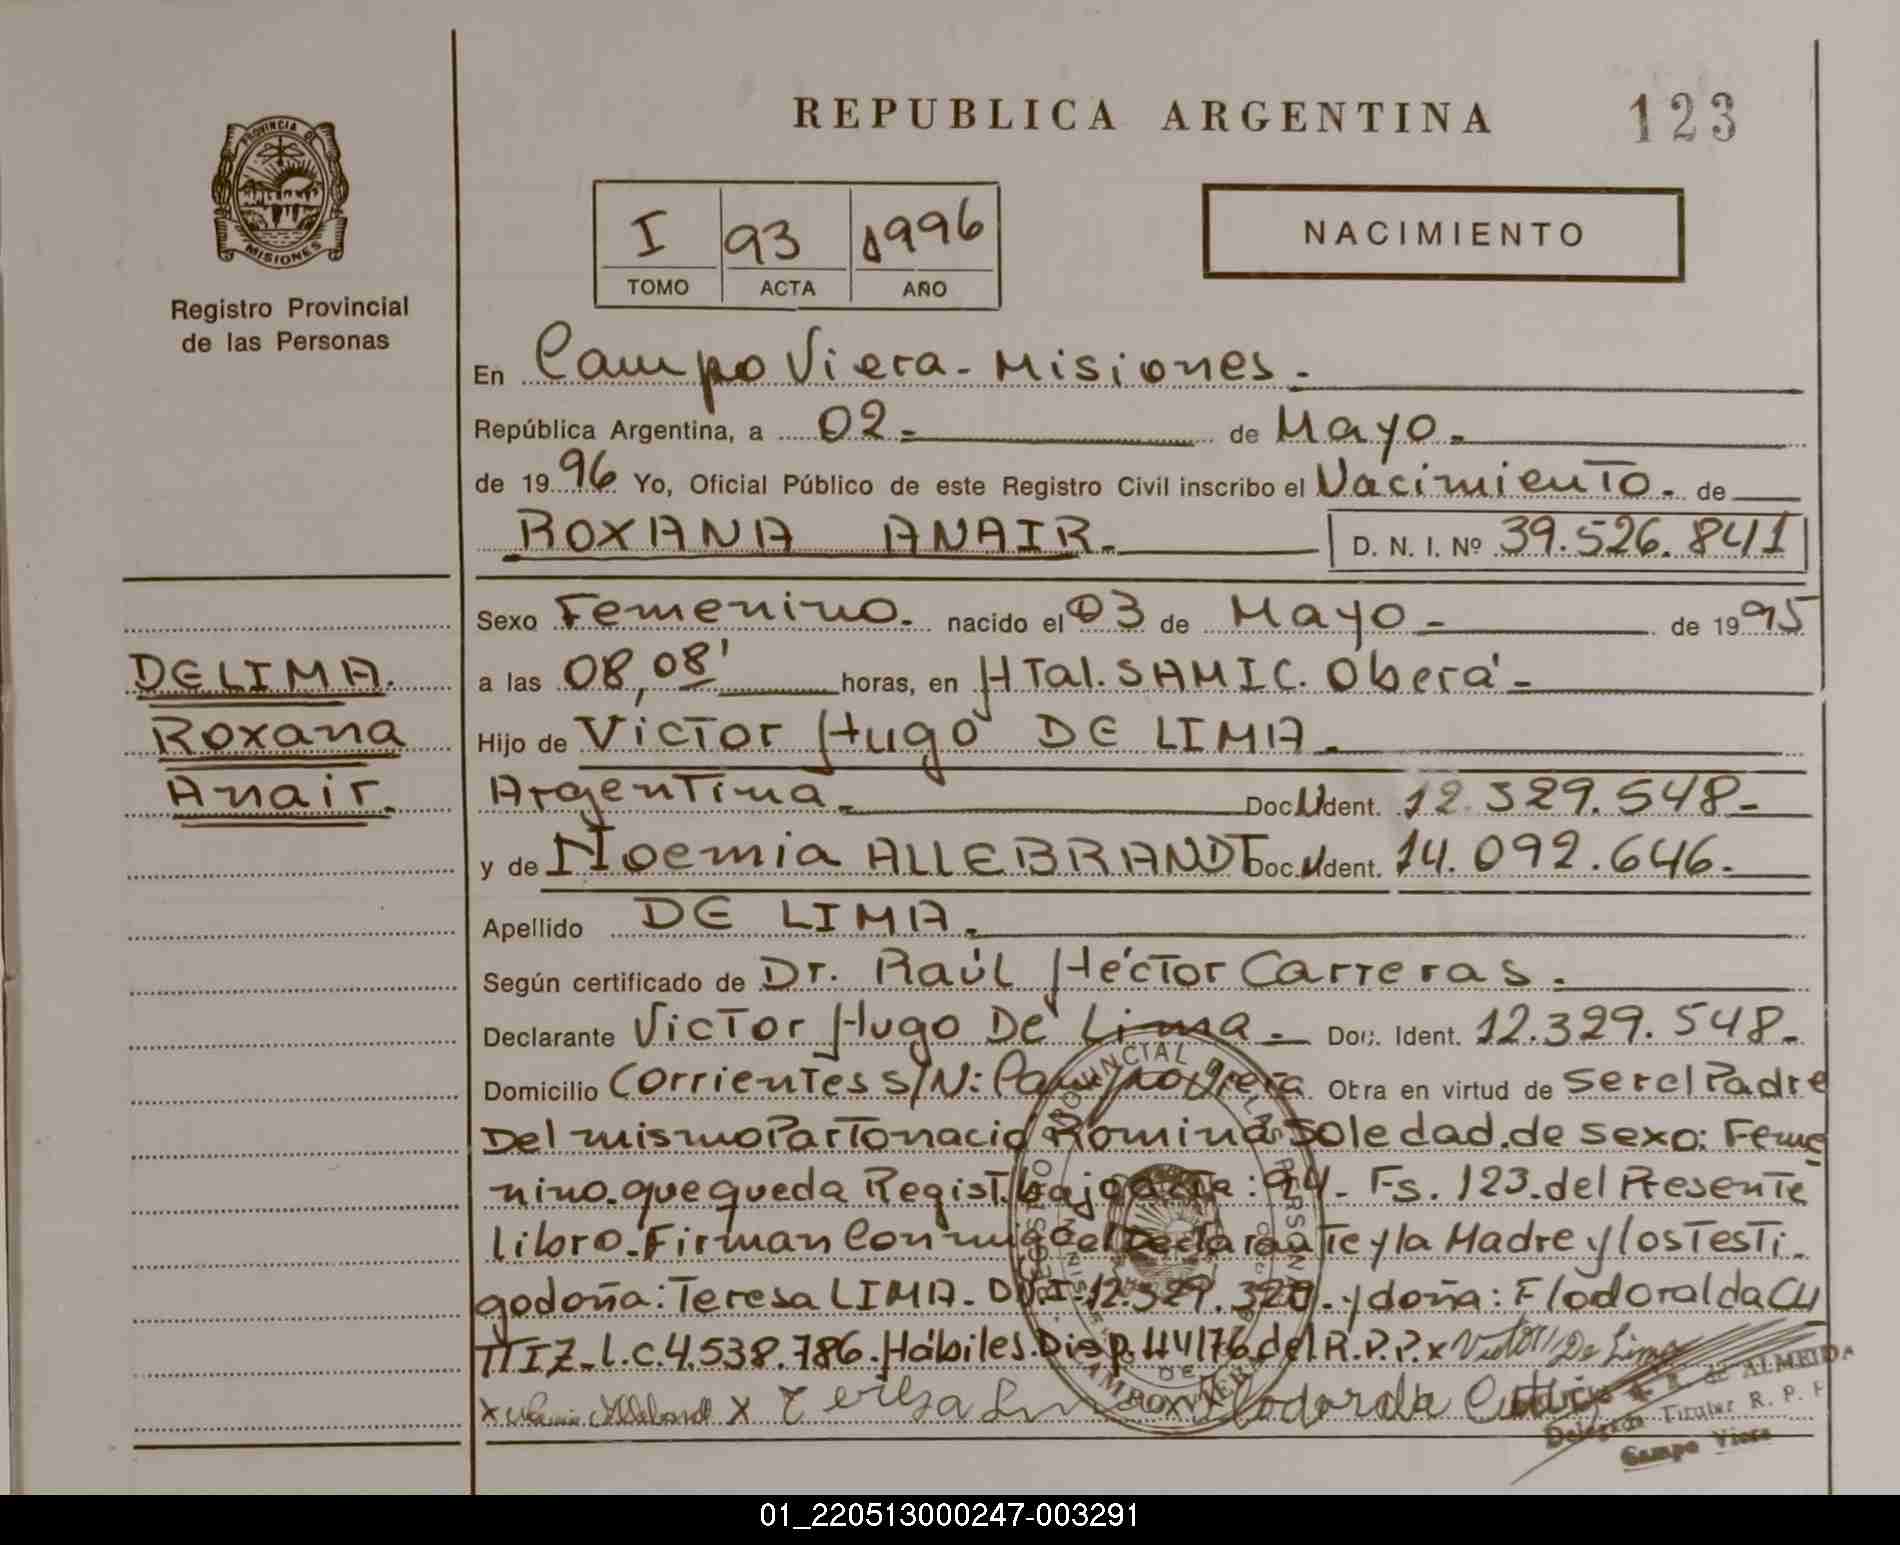 REPUBLICA ARGENTINA
123
PROVINCIA DE
MISIONES
Registro Provincial
de las Personas
I 93 1996
TOMO ACTA AÑO
NACIMIENTO
En Campo Viera - Misiones.-
República Argentina, a 02.- de Mayo.-
de 1996 Yo, Oficial Público de este Registro Civil inscribo el Nacimiento. de
ROXANA ANAIR.- D. N. I. Nº 39.526.841
Sexo Femenino. nacido el 03 de Mayo - de 1995
DE LIMA.
a las 08,08' horas, en HTal. SAMIC. Oberá.-
Roxana
Hijo de Victor Hugo DE LIMA.-
Anair.
Argentina.- Doc. Ident. 12.329.548-
y de Noemia ALLEBRANDT Doc. Ident. 14.092.646.-
Apellido DE LIMA.-
Según certificado de Dr. Raúl Héctor Carreras.-
Declarante Victor Hugo De Lima.- Doc. Ident. 12.329.548-
Domicilio Corrientes s/N: Campo Viera Obra en virtud de ser el Padre
Del mismo Parto nació Romina Soledad. de sexo: Feme
nino. que queda Regist. bajo acta: 94- Fs. 123. del Presente
libro. Firman Conmigo el Declarante y la Madre y los Testi-
go doña: Teresa LIMA- D.N.I. 12.329.320.- y doña: Flodoralda CU
TTIZ- l.c. 4.538.786. Hábiles. Disp. 44/76 del R.P.P. x Victor H De Lima
x x Teresa Flodoralda
de ALMEIDA
Delegada Titular R. P. P.
Campo Viera
01_220513000247-003291